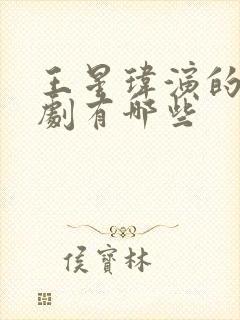 王星瑋演的
劇有哪些
侯寶林